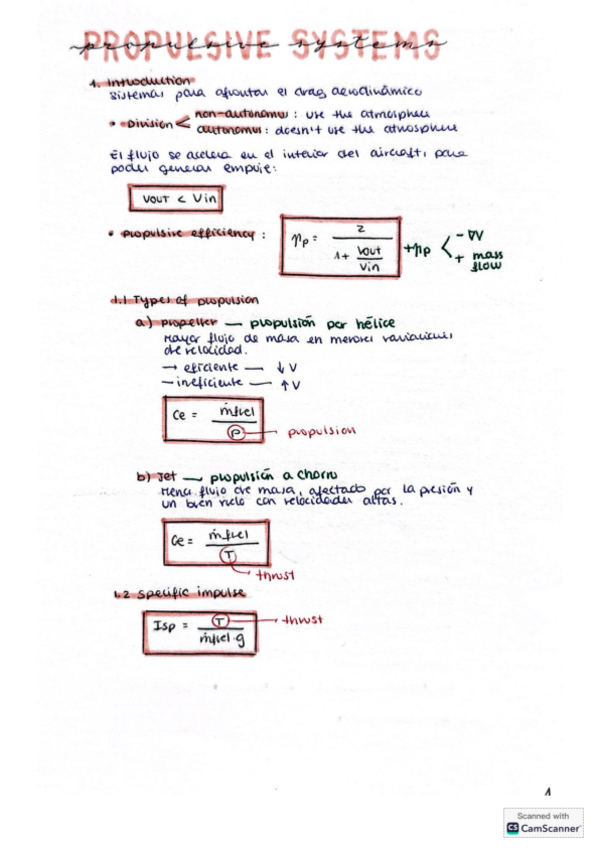 PROPULSIVE SYSTEMS
propulsive systems
1. Introduction
Sistemas para afrontar el drag aerodinámico
• Division < non-autonomus: use the atmosphere
autonomus: doesn't use the atmosphere
El flujo se acelera en el interior del aircraft, para
poder generar empuje:
Vout < Vin
• propulsive efficiency: ηp = 2 / (1 + Vout / Vin) +ηp < - ∇V
+ mass flow
1.1 Types of propulsion
a) propeller — propulsión por hélice
Mayor flujo de masa en menores variaciones
de velocidad.
→ eficiente — ↓ V
— ineficiente — ↑ V
Ce = ṁfuel / P → propulsion
b) Jet — propulsión a chorro
Menor flujo de masa, afectado por la presión y
un buen vuelo con velocidades altas.
Ce = ṁfuel / T → thrust
1.2 Specific impulse
Isp = T / ṁfuel·g → thrust
1
Scanned with
CS CamScanner